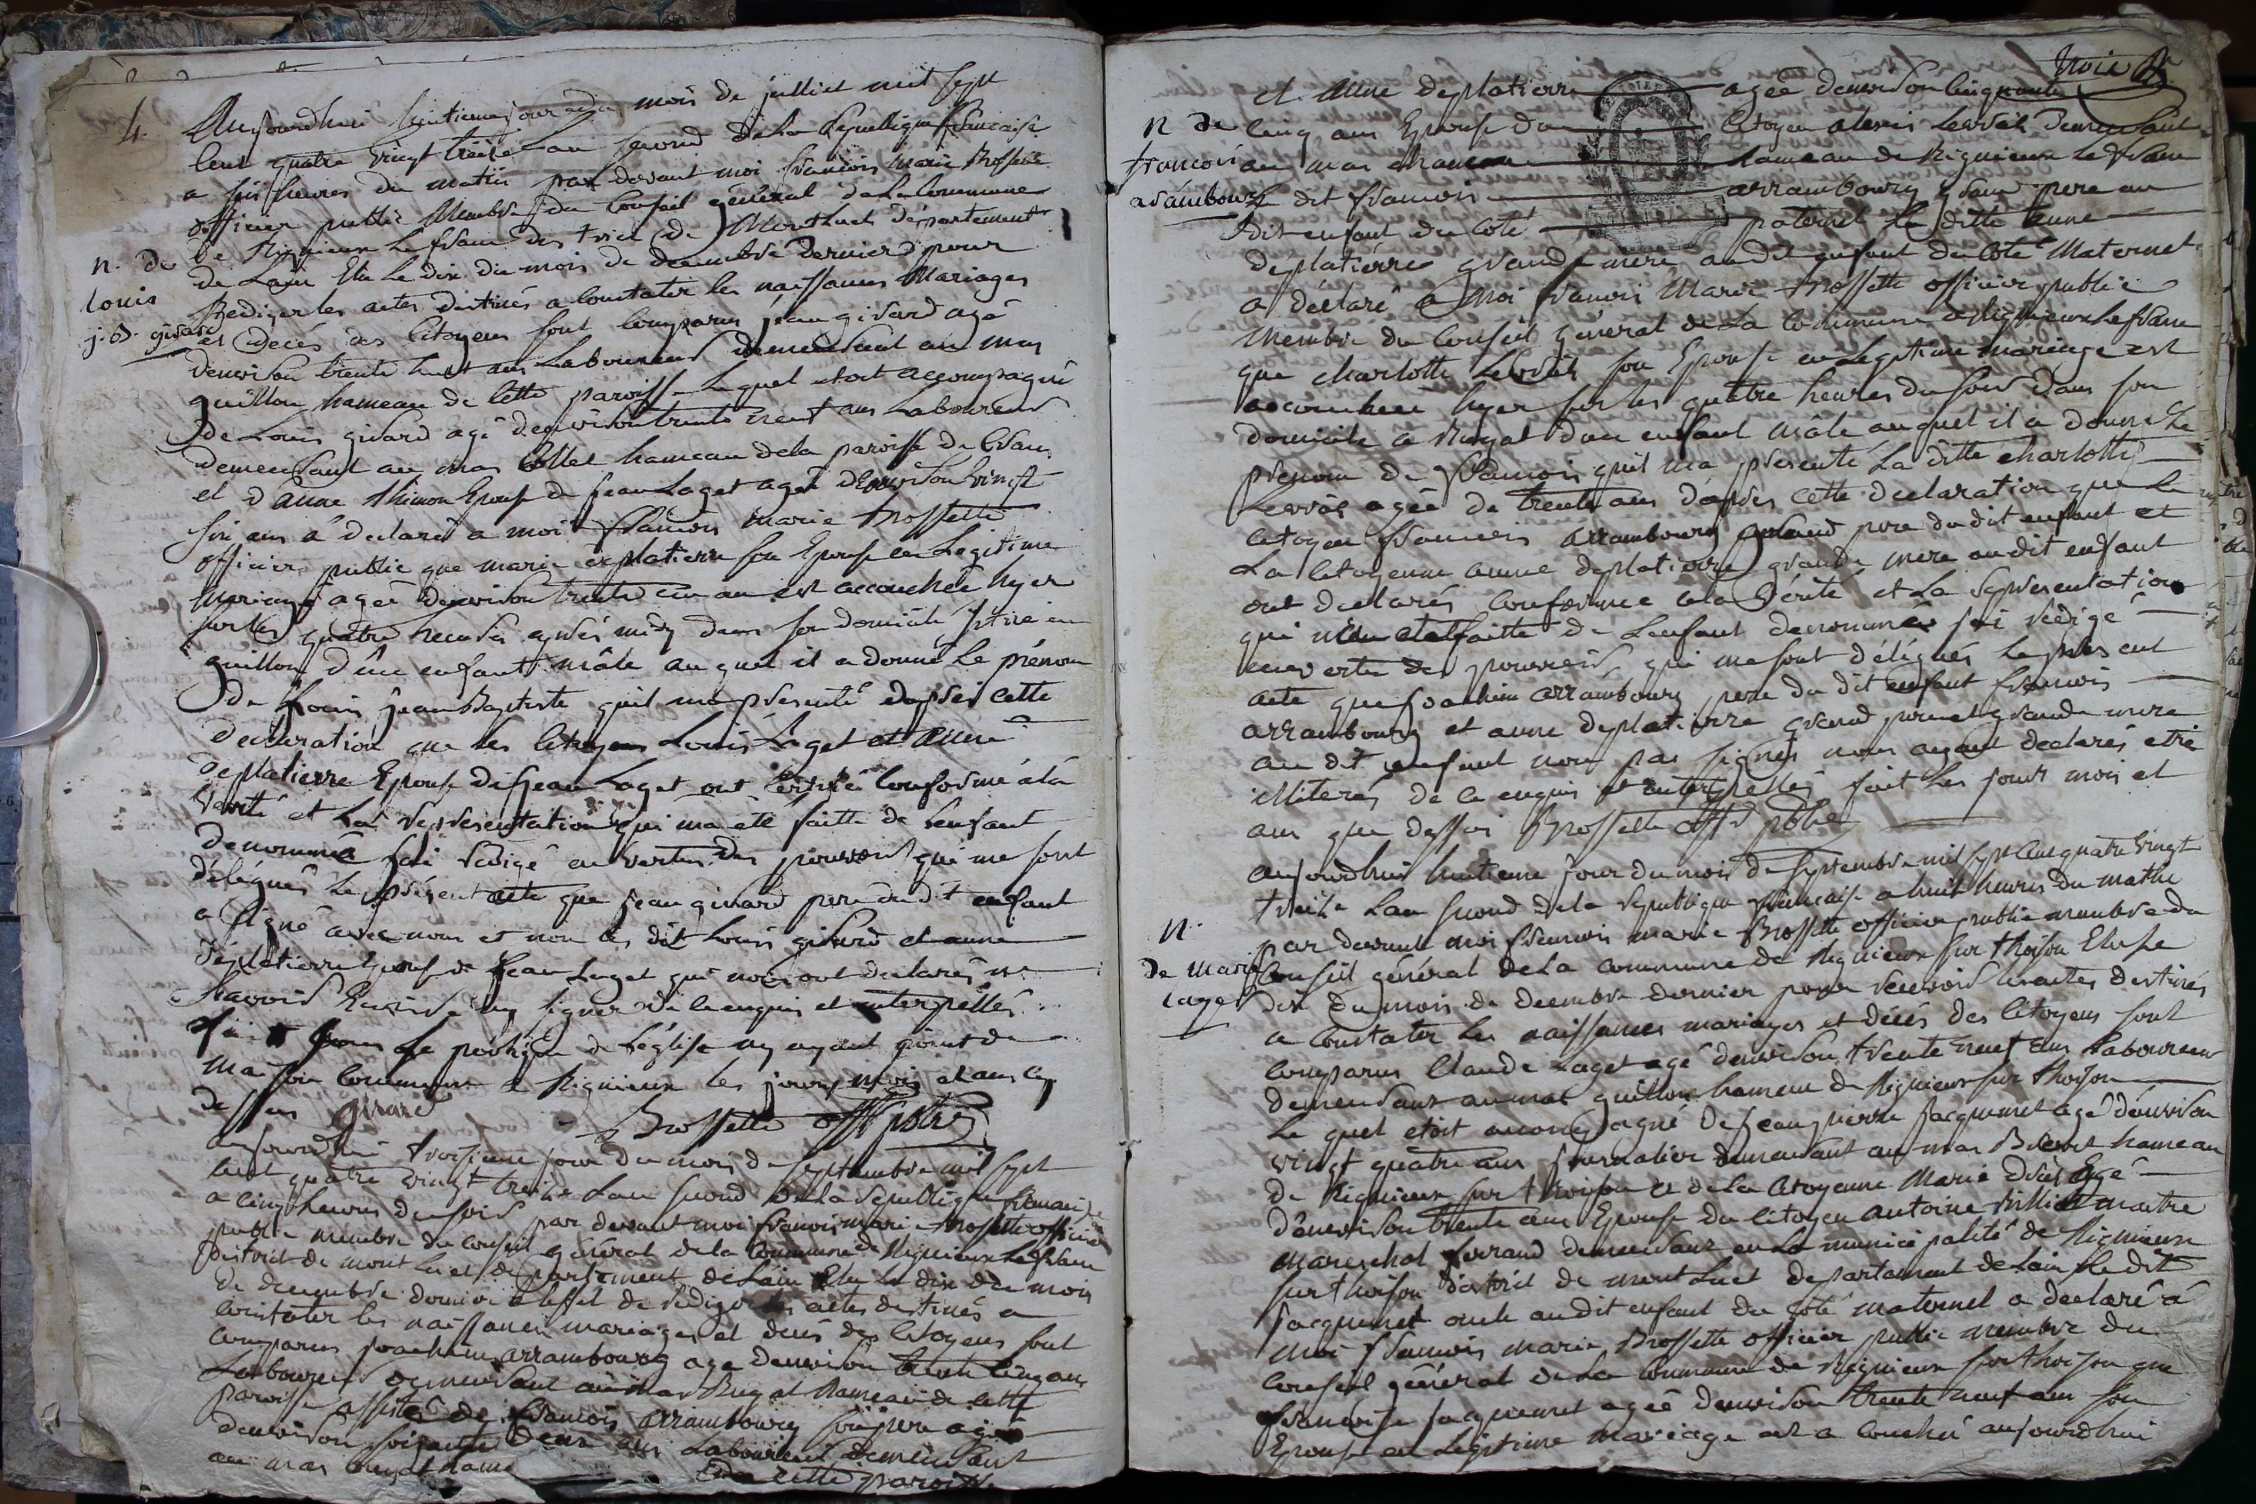 4.
Aujourdhui huitieme jour du mois de julliet mil sept
cent quatre vingt treize Lan second dela Republique francaise
a six heures du matin par devant moi francois marie Brossette
officier public Membre du Conseil général dela Commune
de Rignieux Lefranc district de Montluel département
de Lain Elu Le dix du mois de decembre dernier pour
Rediger les actes destinés a Constater les naissances Mariages
et decés des Citoyens sont Comparus jean girard agé
denviron trente huit ans Laboureur demeurant au mas
guillon hameau de cette paroisse Lequel etoit accompagné
de Louis girard agé denviron trente neuf ans Laboureur
demeurant au mas Collet hameau dela paroisse de Crans
et d'anne thimon Epouse de jean Laget agée denviron vingt
six ans a declaré a moi francois marie Brossette
officier public que marie deplatierre son Epouse en Legitime
mariage agée denviron trente cinq ans est accouchée hyer
sur les quatre heures aprés midy dans son domicile situé en
guillon d'un enfant mâle au quel il a donné Le prénom
de Louis jean Baptiste quil ma presenté daprès cette
declaration que les Citoyens Louis Laget et anne
deplatierre Epouse de jean Laget ont certifié Conforme á la
verité et La representation qui ma été faitte de lenfant
denommé jai redigé en vertu des pouvoirs qui me sont
délégués Le present acte que jean girard pere dudit enfant
a signé avec nous et non les dit Louis girard et anne
deplatierre Epouse de jean Laget qui nous ont declarés ne
scavoir Ecrire ny signer de ce enquis et interpellés
fait sous Le portique de l'église ny ayant point de
maison Commune a Rignieux les jours mois et ans cy
dessus girard
Brossette off pblic
n. de
louis
j. B. girard
aujourdhui troisieme jour du mois de septembre mil sept
cent quatre vingt treize Lan second dela Republique francaise
a cinq heures du soir par devant moi francois marie Brossette officier
public membre du conseil général dela Commune de Rignieux Lefranc
district de mont luel departement de Lain Elu Le dix du mois
de decembre dernier a leffet de rediger les actes destinés a
constater les naissances mariages et decés des Citoyens sont
comparus joachim arrambourg agé denviron trente cinq ans
Laboureur demeurant au mas Rugat hameau de cette
paroisse assisté de francois arrambourg son pere agé
denviron soixante deux ans Laboureur demeurant
au mas Rugat hame
de cette paroisse
trois
et anne deplatierre agée denviron cinquante
cinq ans Epouse du Citoyen alexis Lervat demeurant
au mas hameau de Rignieux Lefranc
Le dit francois arrambourg grand pere au
dit enfant du coté paternel La ditte anne
deplatierre grande mere audit enfant du coté Maternel
a déclaré a moi francois Marie Brossette officier public
membre du Conseil général de la Commune de Rignieux Lefranc
que charlotte Lervat son Epouse en Legitime mariage est
accouchée hyer sur les quatre heures du soir dans son
domicile a Rugat dun enfant mâle auquel il a donné Le
prenom de francois quil ma presenté La ditte charlotte
Lervat agée de trente ans daprès cette declaration que Le
citoyen francois arrambourg grand pere du dit enfant et
La Citoyenne anne deplatierre grande mere audit enfant
ont declarés Conforme a la verité et La representation
qui m'a été faitte de Lenfant denommé jai redigé
en vertu des pouvoirs qui me sont délégués Le present
acte que joachim arrambourg pere du dit enfant francois
arrambourg et anne deplatierre grand pere et grande mere
au dit enfant non pas signés nous ayant declarés etre
illiterés de ce enquis et interpellés fait les jours mois et
ans que dessus Brossette off pblic
n de
francois
arambourg
aujourdhui huitieme jour du mois de septembre mil sept cent quatre vingt
treize Lan second dela republique francaise a huit heures du matin
par devant moi francois marie Brossette officier public membre du
Conseil général dela commune de Rignieux sur thoison Elu Le
dix du mois de decembre dernier pour recevoir les actes destinés
a constater les naissances mariages et décés des Citoyens sont
comparus Claude Laget agé denviron trente neuf ans Laboureur
demeurant au mas guillon hameau de Rignieux sur thoison
Le quel etoit accompagné de jean pierre jacquemet agé denviron
vingt quatre ans journalier demeurant au mas Buenet hameau
de Rignieux sur thoison et dela Citoyenne Marie Agé
denviron trente ans Epouse du Citoyen antoine maitre
marechal ferrand demeurant en La municipalité de Rignieux
sur thoison district de mont Luel departement de Lain Le dit
jacquemet oncle audit enfant du coté maternel a declaré á
moi francois marie Brossette officier public membre du
Conseil général dela commune de Rignieux sur thoison que
francoise jacquemet agée denviron trente neuf ans son
Epouse en Legitime mariage est a couchée aujourdhui
n.
de Marie
laget